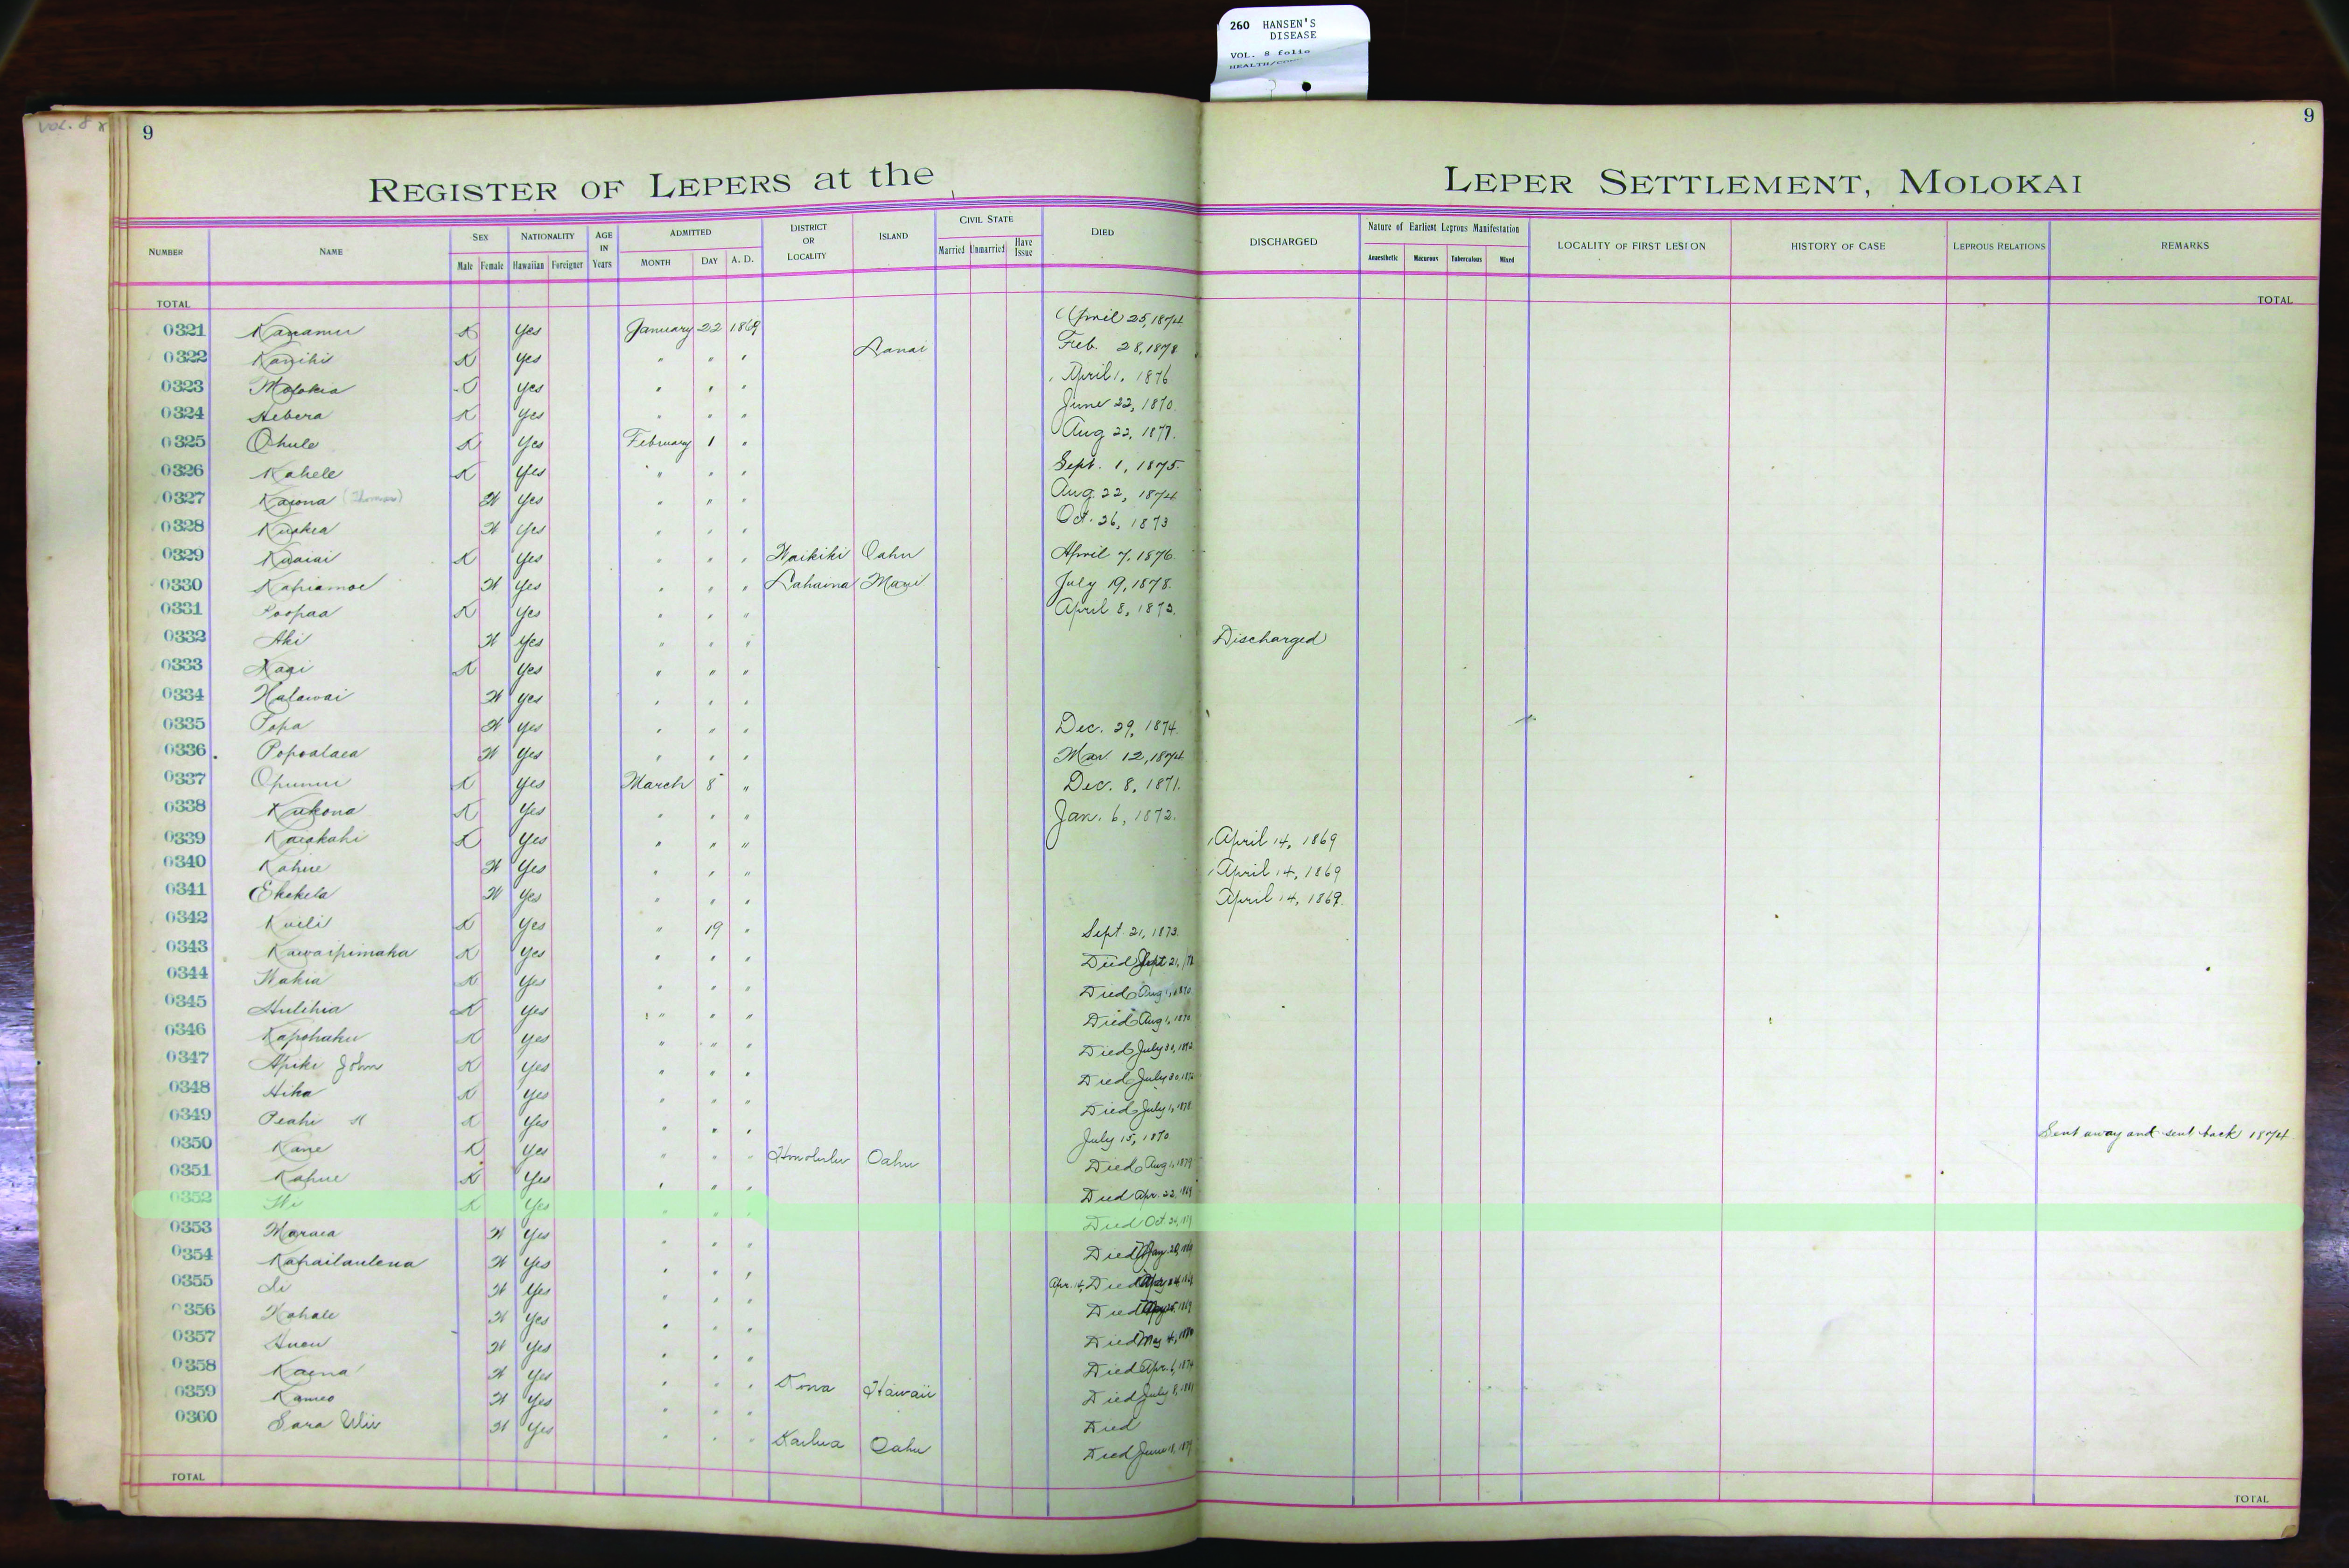 260 HANSEN'S
DISEASE
VOL. 8 folio
VOL. 8
9
9
REGISTER OF LEPERS at the LEPER SETTLEMENT, MOLOKAI
NUMBER NAME SEX NATIONALITY AGE IN Years ADMITTED DISTRICT OR LOCALITY ISLAND CIVIL STATE DIED DISCHARGED Nature of Earliest Leprous Manifestation LOCALITY OF FIRST LESION HISTORY OF CASE LEPROUS RELATIONS REMARKS
Male Female Hawaiian Foreigner MONTH DAY A. D. Married Unmarried Have Issue Anaesthetic Macurous Tuberculous Mixed
TOTAL TOTAL
0321 Kanamu K Yes January 22 1869 April 25, 1874
0322 K Yes " " " Lanai Feb. 28, 1878
0323 Molokia Yes " " " April 1, 1876
0324 Hebera K Yes " " " June 22, 1870
0325 Ohule K Yes February 1 " Aug 22, 1877.
0326 Kahele K Yes " " " Sept. 1, 1875.
0327 Kaiona (Thomas) W Yes " " " Aug. 22, 1874
0328 Kuakea W Yes " " " Oct. 26, 1873
0329 Kuaiai K Yes " " " Waikiki Oahu April 7, 1876.
0330 Kahiamoe W Yes " " " Lahaina Maui July 19, 1878.
0331 Poopaa K Yes " " " April 8, 1873.
0332 Aki W Yes " " " Discharged
0333 K Yes " " "
0334 Halawai W Yes " " "
0335 Popa W Yes " " " Dec. 29, 1874.
0336 Popoalaea W Yes " " " Mar 12, 1874
0337 Opunui K Yes March 8 " Dec. 8, 1871.
0338 Kukona K Yes " " " Jan. 6, 1872.
0339 Kaiakahi K Yes " " " April 14, 1869
0340 Kahue W Yes " " " April 14, 1869
0341 Ekekela W Yes " " " April 14, 1869.
0342 Kuili K Yes " 19 " Sept. 21, 1873.
0343 Kawaipimaka K Yes " " " Died Sept 21,
0344 Wahia K Yes " " " Died Aug 1, 1870
0345 Hulihia K Yes " " " Died Aug 1, 1870
0346 Kapohaku K Yes " " " Died July 30,
0347 Apiki John K Yes " " " Died July 30,
0348 Hika K Yes " " " Died July 1, 1878
0349 Peahi K Yes " " " July 15, 1870. Sent away and sent back 1874.
0350 Kane K Yes " " " Honolulu Oahu Died Aug 1, 1879
0351 Kahue K Yes " " " Died Apr. 22, 1869
0352 K Yes " " " Died Oct.
0353 Maraea W Yes " " " Died May 20,
0354 Kahailaulena W Yes " " " Apr. 14, Died
0355 W Yes " " " Died
0356 Kahale W Yes " " " Died May 4,
0357 W Yes " " " Died Apr. 6, 1874
0358 Kaena W Yes " " " Kona Hawaii Died July 8, 1881
0359 Kameo W Yes " " " Died
0360 Sara W Yes " " " Kailua Oahu Died June
TOTAL TOTAL